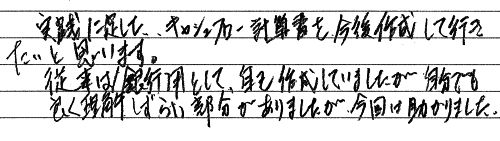 実践に促した、キャッシュフロー計算書を今後作成して行き
たいと思います。
従来は銀行用として、自己作成していましたが自分でも
良く理解しずらい部分がありましたが今回は助かりました。